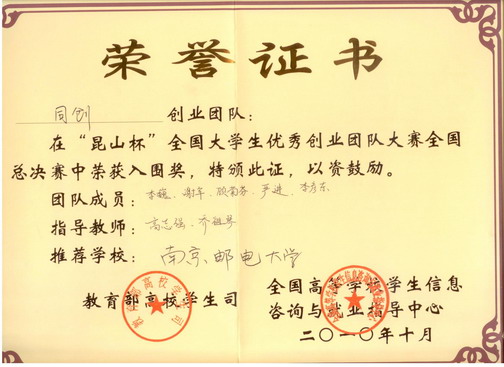 荣誉证书
同创 创业团队：
在“昆山杯”全国大学生优秀创业团队大赛全国
总决赛中荣获入围奖，特颁此证，以资鼓励。
团队成员：李巍、谢军、 严进、李彦东
指导教师：高志强、乔
推荐学校：南京邮电大学
教育部高校学生司
全国高等学校学生信息
咨询与就业指导中心
二〇一〇年十月